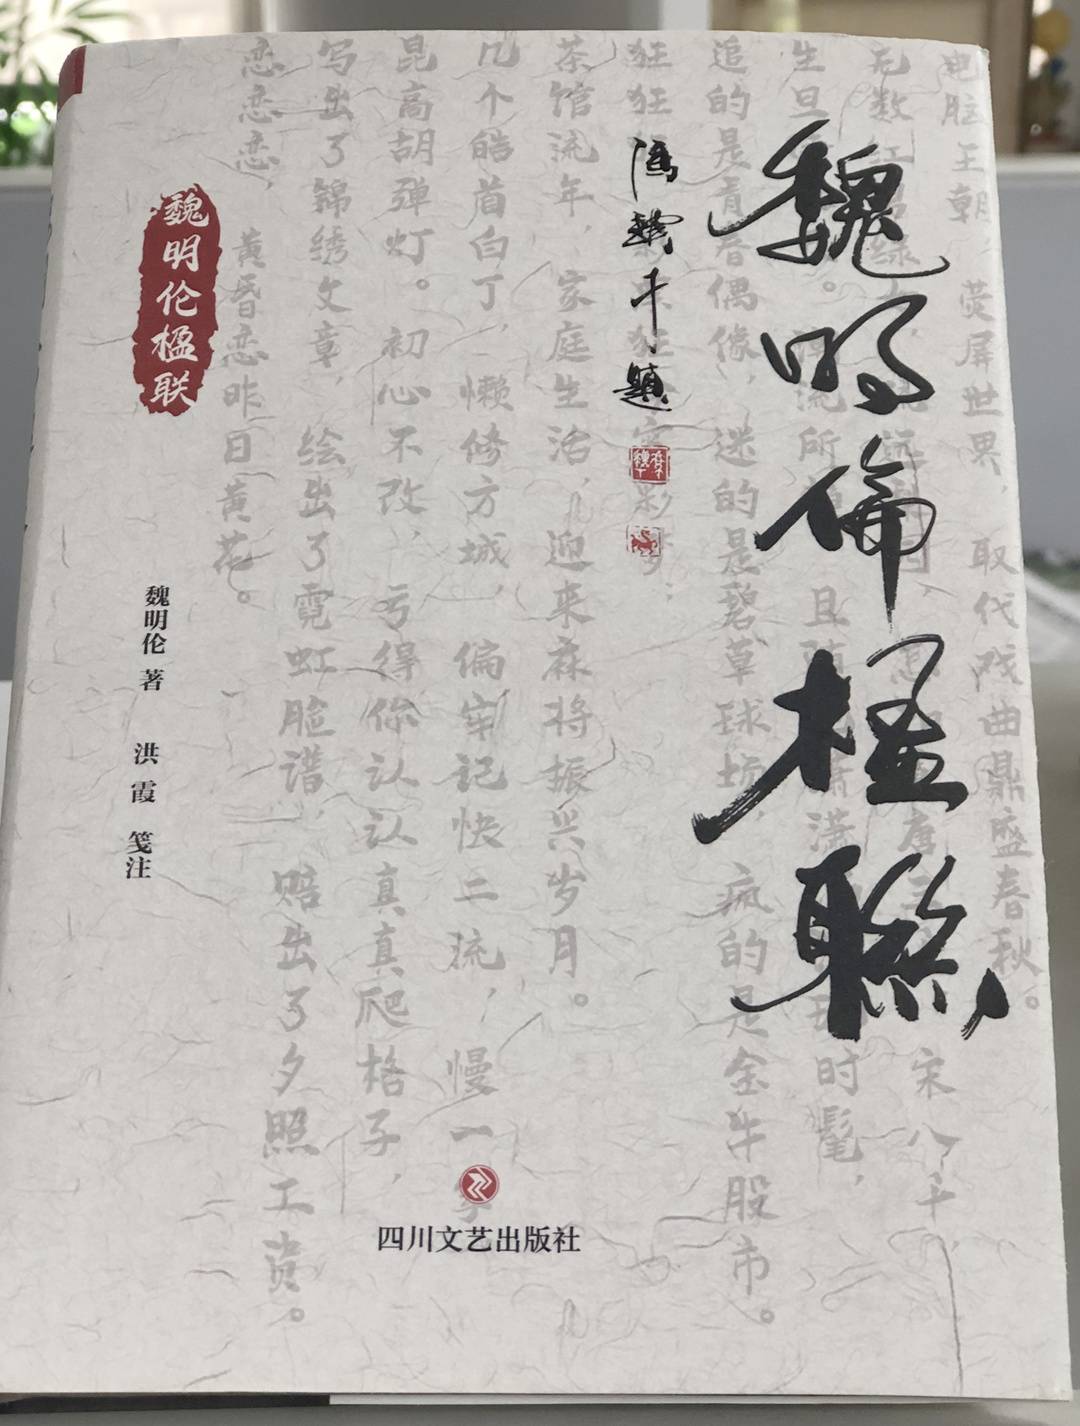 魏明倫楹聯
馮驥才題
电脑王朝，荧屏世界，取代戏曲鼎盛春秋。
无数红 宋八斗，
生旦 流所 且 时髦，
追的是青春偶像，迷的是碧草球场，疯的是金牛股市。
狂狂
茶馆流年，家庭生活，迎来麻将振兴岁月。
几个皓首白丁，懒修方城，偏牢记快二流，慢一
昆高胡弹灯。初心不改，亏得你认认真真爬格子，
写出了锦绣文章，绘出了霓虹脸谱，赔出了夕照工资。
恋恋恋，黄昏恋昨日黄花。
魏明伦楹联
魏明伦 著
洪霞 笺注
四川文艺出版社